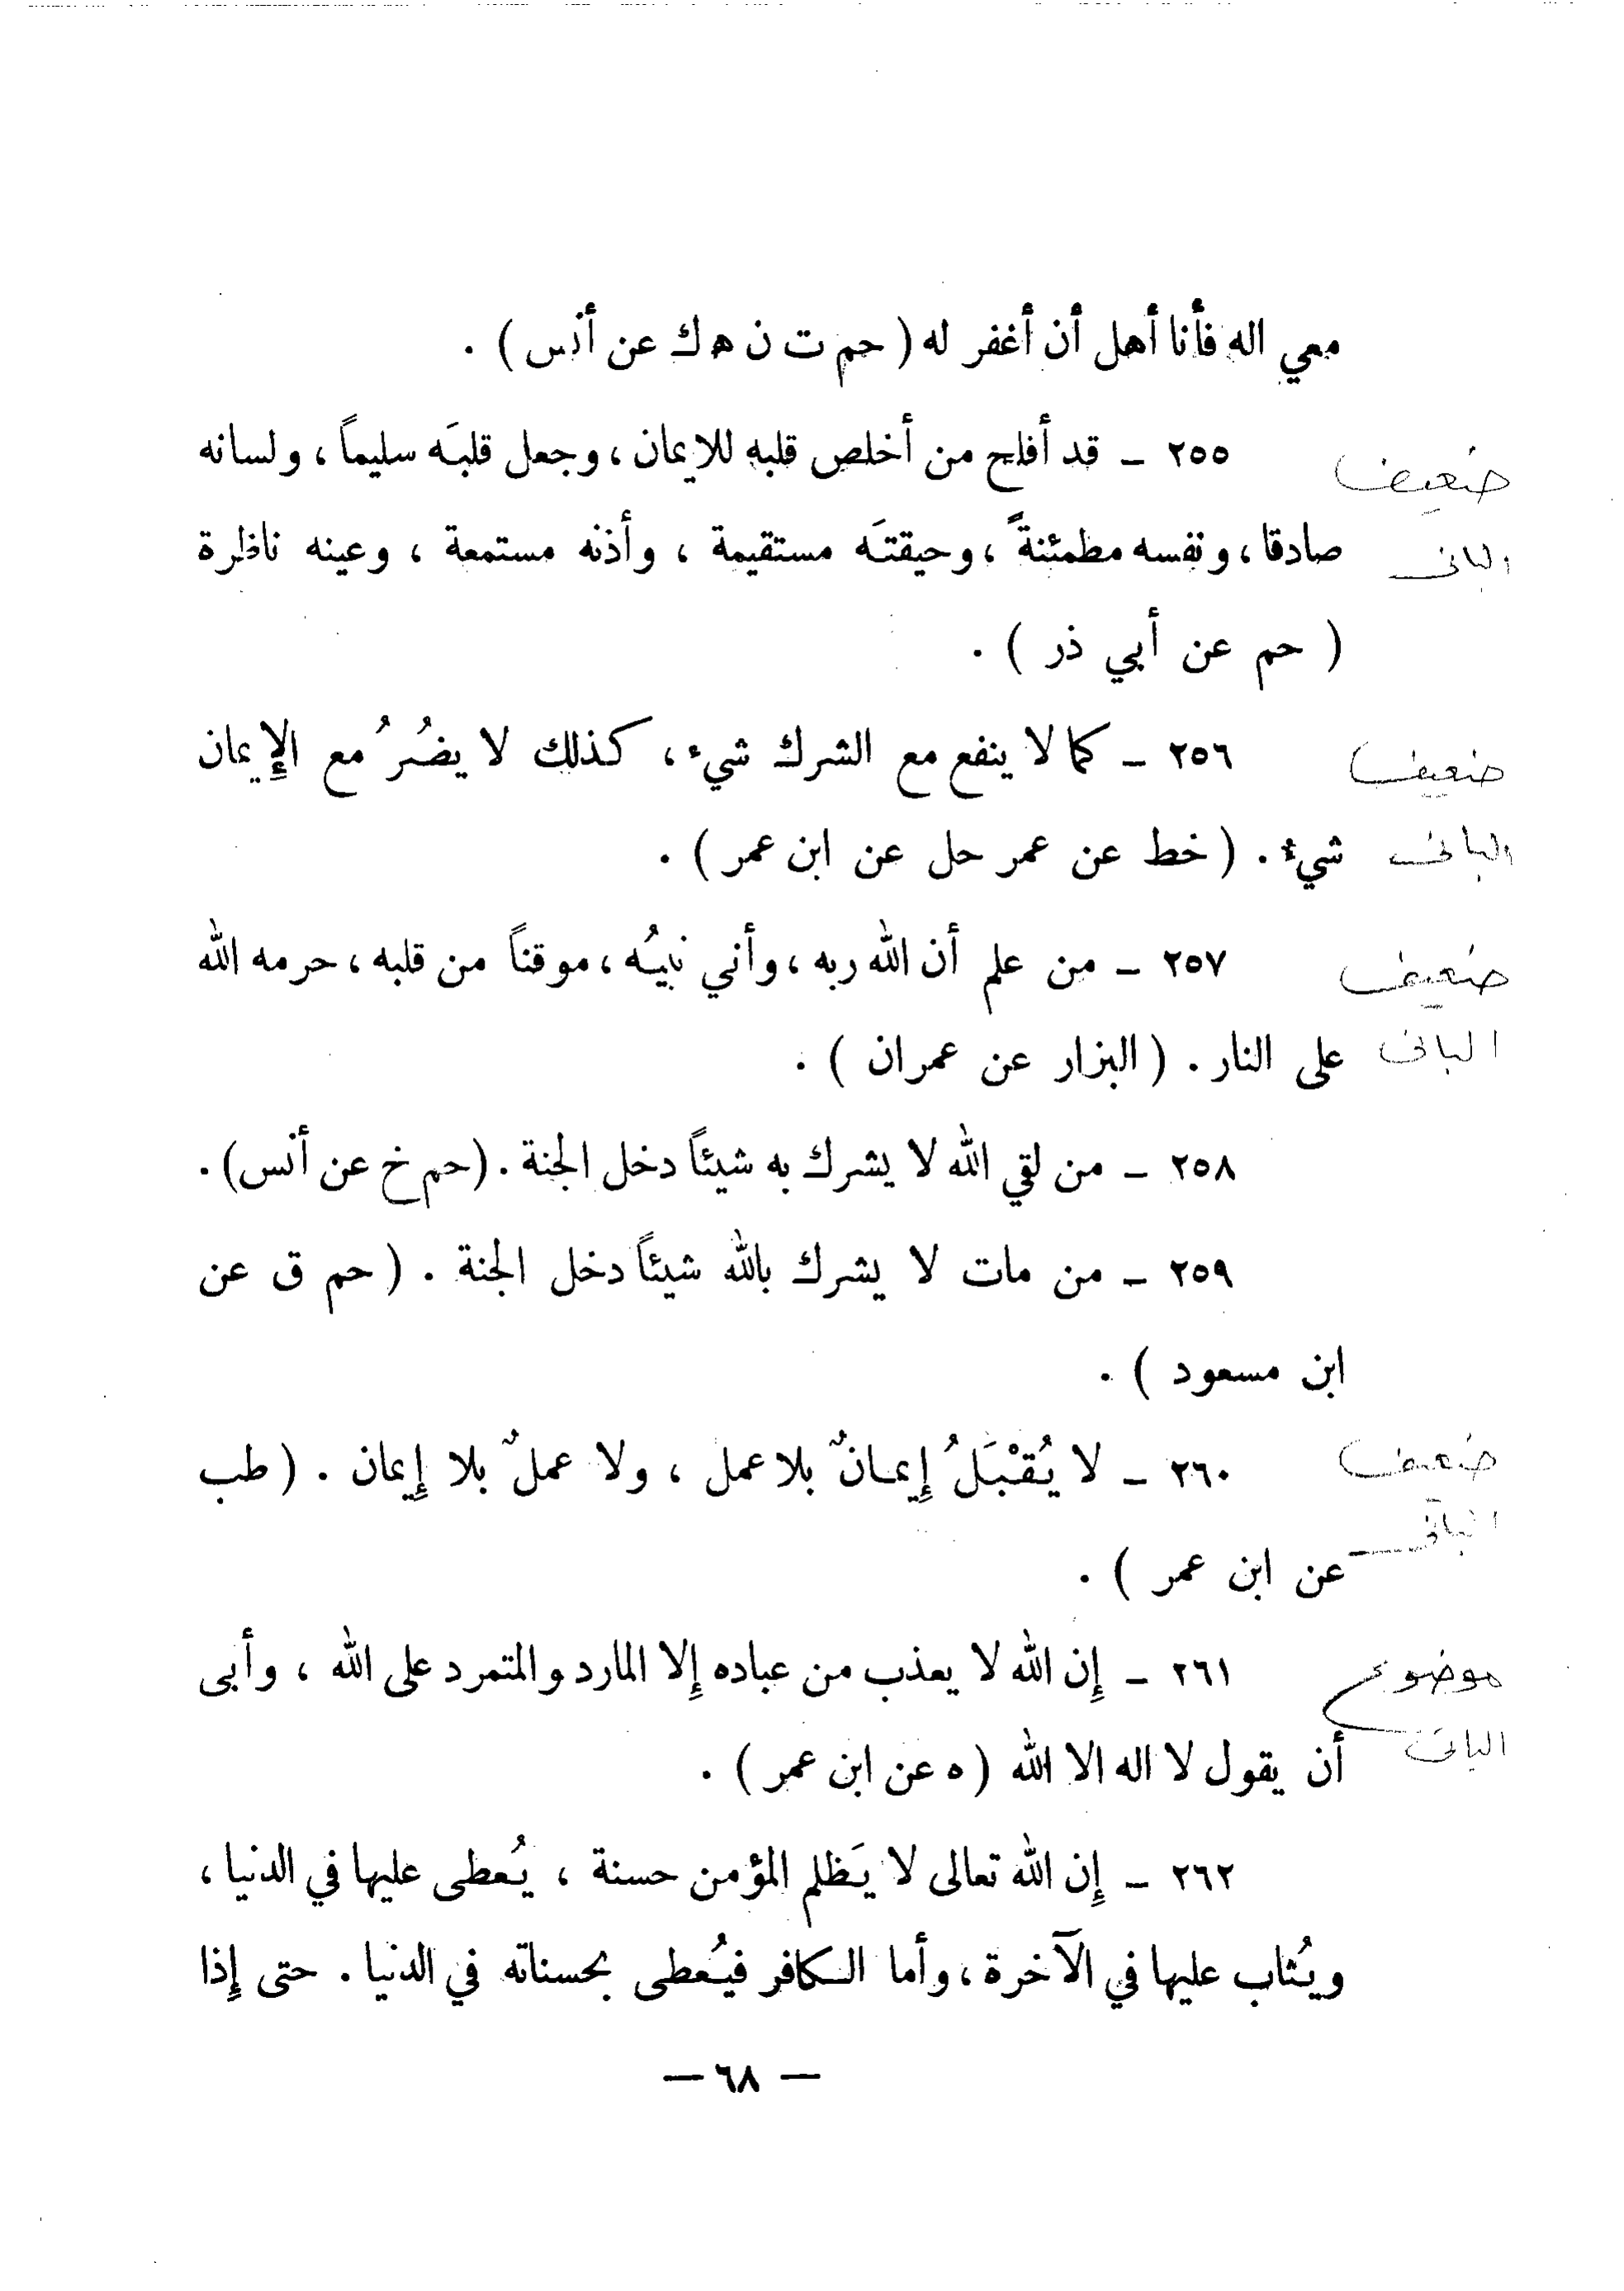 معي اله فأنا أهل أن أغفر له ( حم ت ن ه ك عن أنس ) .
٢٥٥ – قد أفلح من أخلص قلبه للايمان ، وجعل قلبَه سليماً ، ولسانه
ضعيف
صادقا ، ونفسه مطمئنةً ، وحيقتَه مستقيمة ، وأذنه مستمعة ، وعينه ناظرة
البانى
( حم عن أبي ذر ) .
٢٥٦ – كما لا ينفع مع الشرك شيء ، كذلك لا يضُرُ مع الإيمان
ضعيف
شيء . ( خط عن عمر حل عن ابن عمر ) .
البانى
٢٥٧ – من علم أن الله ربه ، وأني نبيُه ، موقناً من قلبه ، حرمه الله
ضعيف
على النار . ( البزار عن عمران ) .
البانى
٢٥٨ – من لقي الله لا يشرك به شيئاً دخل الجنة . (حم خ عن أنس) .
٢٥٩ – من مات لا يشرك بالله شيئاً دخل الجنة . ( حم ق عن
ابن مسعود ) .
٢٦٠ – لا يُقْبَلُ إِيمانٌ بلا عمل ، ولا عملٌ بلا إِيمان . ( طب
ضعيف
البانى
عن ابن عمر ) .
٢٦١ – إِن الله لا يعذب من عباده إِلا المارد والمتمرد على الله ، وأبى
موضوع
أن يقول لا اله الا الله ( ه عن ابن عمر ) .
البانى
٢٦٢ – إِن الله تعالى لا يَظلم المؤمن حسنة ، يُعطى عليها في الدنيا ،
ويُثاب عليها في الآخرة ، وأما الكافر فيُعطى بحسناته في الدنيا . حتى إِذا
— ٦٨ —